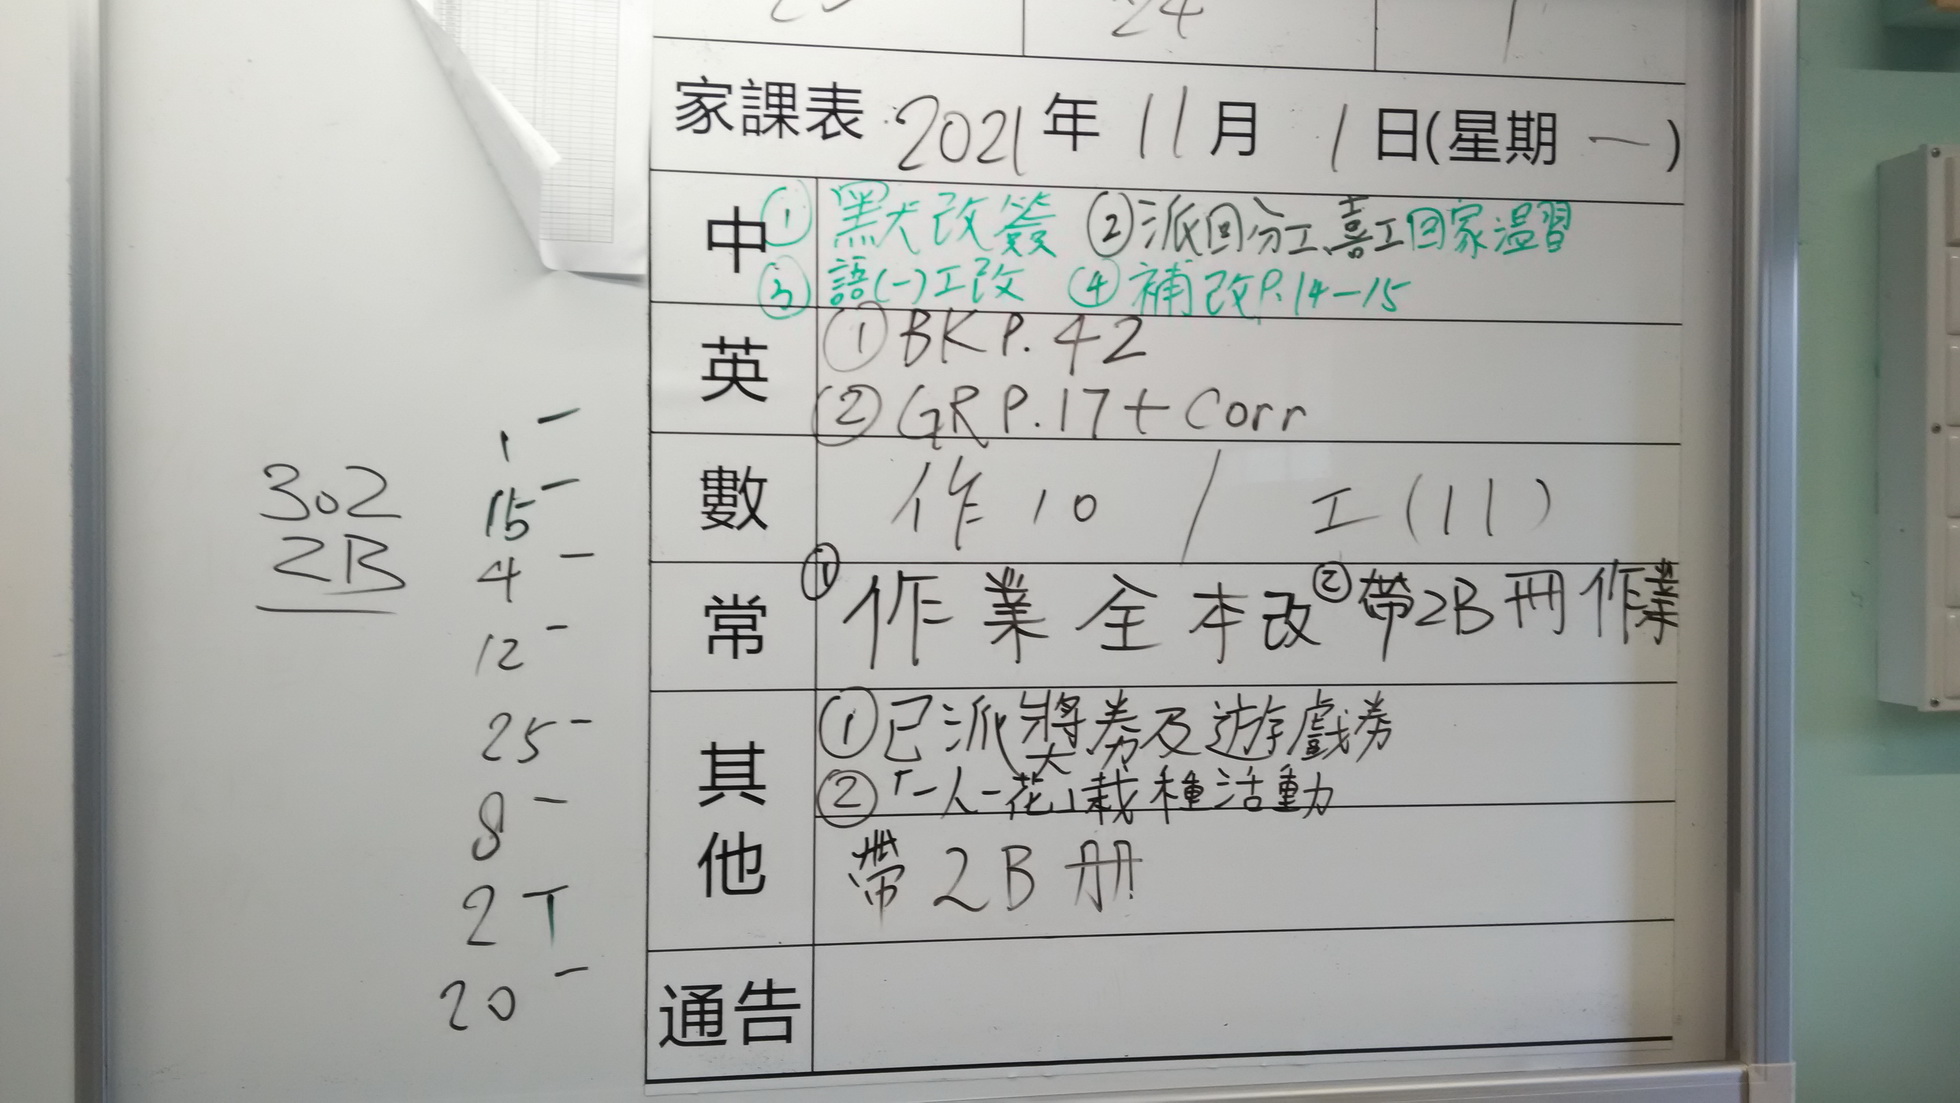 24
家課表 2021年 11月 1日(星期 一)
中 ① 默改簽 ② 派回分工、喜工回家溫習
③ 語(一)工改 ④ 補改P.14-15
英 ① BK P.42
② GR P.17 + Corr
數 作10 / 工(11)
常 ① 作業全本改 ② 帶2B冊作業
其他 ① 已派獎券及遊戲券
② 「一人一花」栽種活動
帶2B冊
通告
302
2B
1 -
15 -
4 -
12 -
25 -
8 -
2 T
20 -